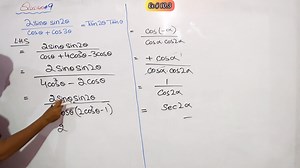 2sinθ sin2θ
cosθ + cos3θ
= Tan2θ Tanθ
LHS
= 2sinθ sin2θ
cosθ + 4cos³θ - 3cosθ
= 2sinθ sin2θ
4cos³θ - 2cosθ
= 2sinθ sin2θ
cosθ(2cos²θ-1)
2
= cos(-α)
cosα cos2α
= + cosα
cosα cos2α
= 1
cos2α
= sec2α